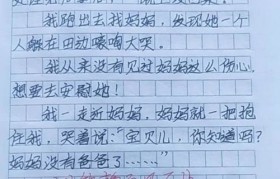 我跑出去找妈妈，发现她一个
人蹲在田边嚎啕大哭。
我从来没有见过妈妈这么伤心，
想要去安慰她！
我一走近妈妈，妈妈就一把抱
住我，哭着说：“宝贝儿，你知道吗？
妈妈没有爸爸了……”